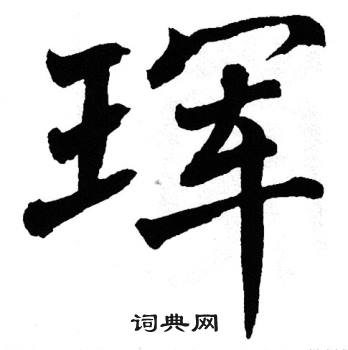 珲
词典网